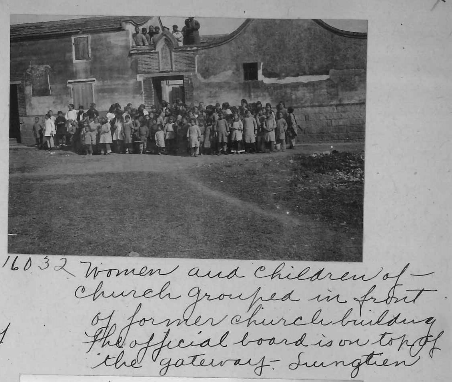 16032 Women and children of
church grouped in front
of former church building
The official board is on top of
the gateway. Sungtien